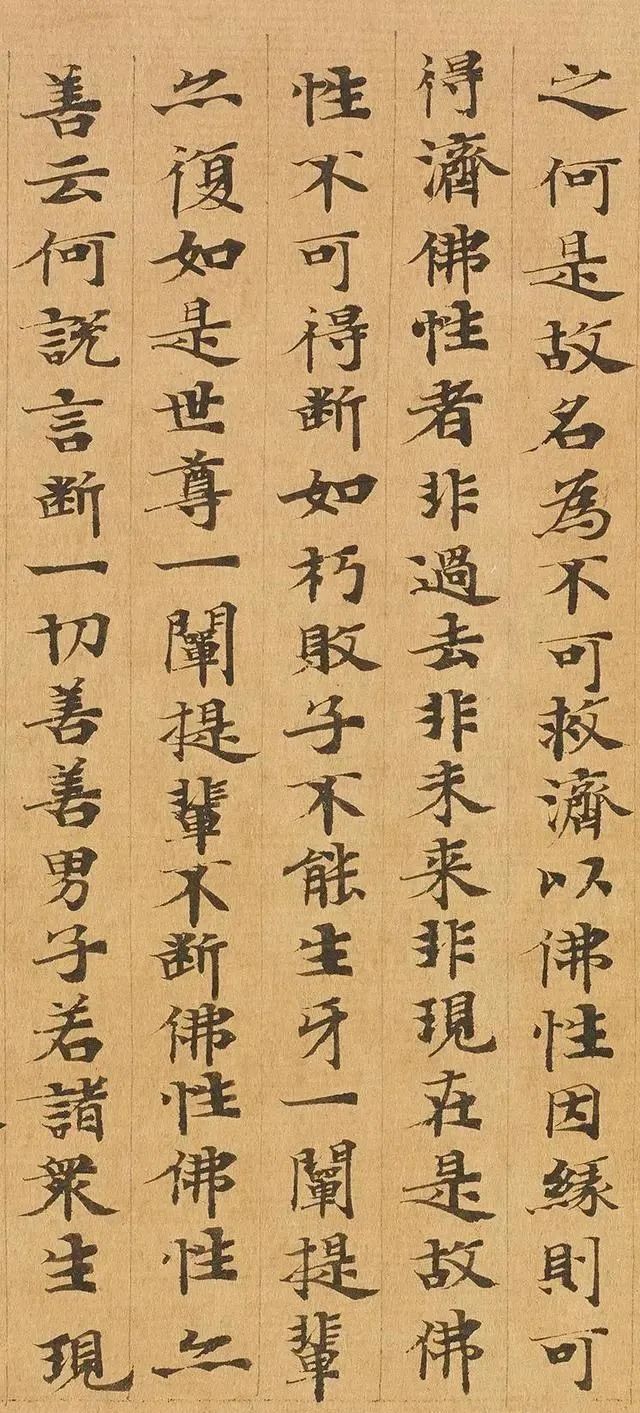 之何是故名為不可救濟以佛性因緣則可
得濟佛性者非過去非未来非現在是故佛
性不可得断如朽敗子不能生牙一闡提輩
亦復如是世尊一闡提輩不断佛性佛性亦
善云何説言断一切善善男子若諸衆生現